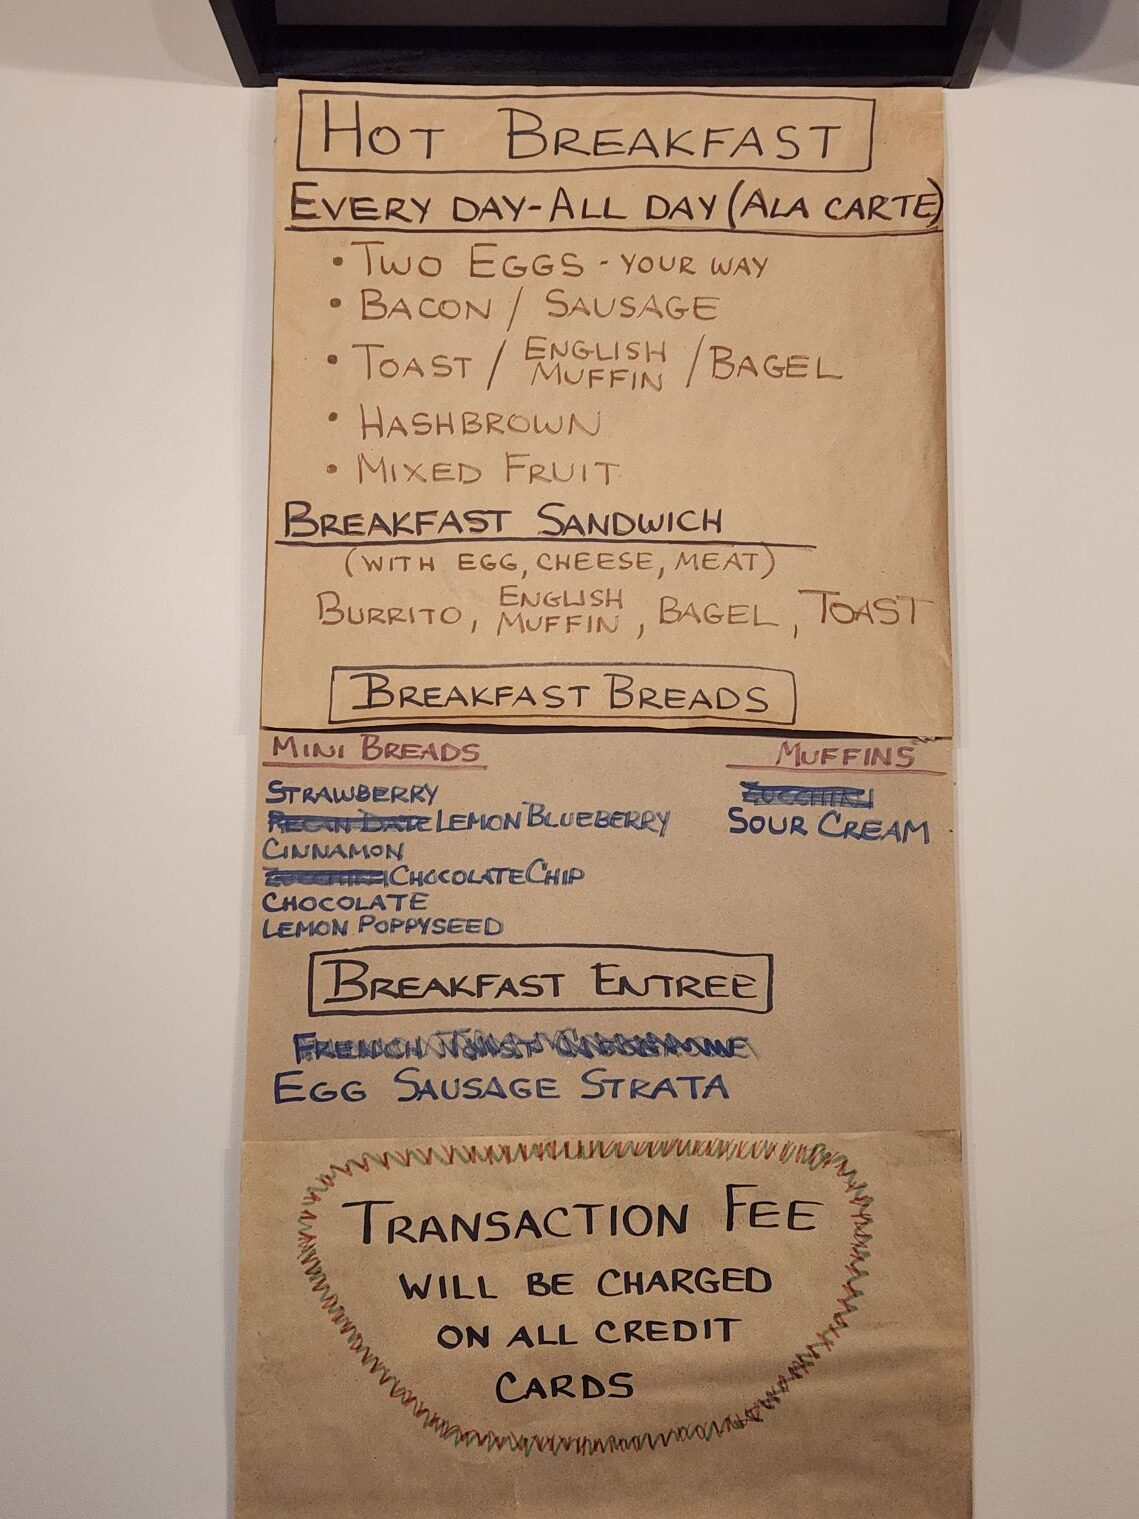 HOT BREAKFAST
EVERY DAY-ALL DAY (ALA CARTE)
• TWO EGGS - YOUR WAY
• BACON / SAUSAGE
• TOAST / ENGLISH MUFFIN / BAGEL
• HASHBROWN
• MIXED FRUIT
BREAKFAST SANDWICH
(WITH EGG, CHEESE, MEAT)
BURRITO, ENGLISH MUFFIN, BAGEL, TOAST
BREAKFAST BREADS
MINI BREADS
STRAWBERRY
PECAN DATE LEMON BLUEBERRY
CINNAMON
ZUCCHINI CHOCOLATE CHIP
CHOCOLATE
LEMON POPPYSEED
MUFFINS
ZUCCHINI
SOUR CREAM
BREAKFAST ENTREE
FRENCH TOAST
EGG SAUSAGE STRATA
TRANSACTION FEE
WILL BE CHARGED
ON ALL CREDIT
CARDS